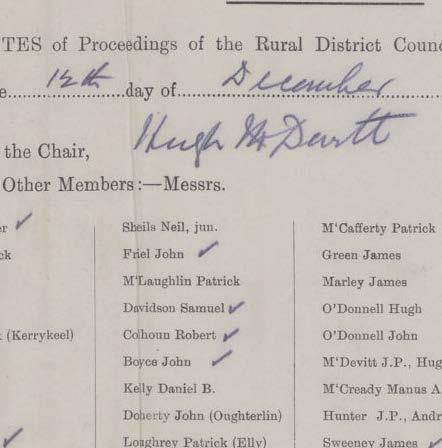 TES of Proceedings of the Rural District Counc
12th day of December
the Chair, Hugh McDevitt
Other Members:—Messrs.
Sheils Neil, jun. M‘Cafferty Patrick
Friel John Green James
M‘Laughlin Patrick Marley James
Davidson Samuel O’Donnell Hugh
(Kerrykeel) Colhoun Robert O’Donnell John
Boyce John M‘Devitt J.P., Hug
Kelly Daniel B. M‘Cready Manus A
Doherty John (Oughterlin) Hunter J.P., Andr
Loughrey Patrick (Elly) Sweeney James